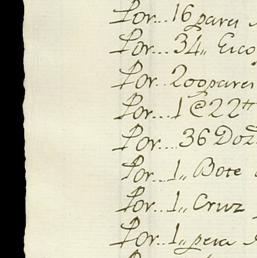 Por... 16 pares
Por... 34,, Esco
Por... 200 pares
Por... 1 @ 22 tt
Por... 36 Doz
Por... 1,, Bote
Por... 1,, Cruz
Por... 1,, pera